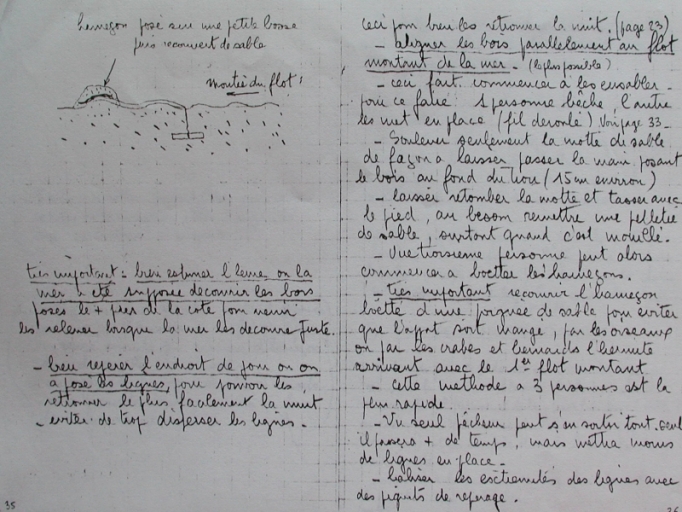 hameçon posé sur une petite bosse
puis recouvert de sable
montée du flot
très important : bien estimer l'heure où la
mer est supposée découvrir les bois
posés le + près de la côte pour venir
les relever lorsque la mer les découvre juste.
- bien repérer l'endroit de jour où on
a posé les lignes, pour pouvoir les
retrouver le plus facilement la nuit
- éviter de trop disperser les lignes.
35
ceci pour bien les retrouver la nuit. (page 23)
- aligner les bois parallèlement au flot
montant de la mer. - (le plus possible)
- ceci fait commencer à les ensabler -
pour ce faire : 1 personne bêche, l'autre
les met en place (fil déroulé) Voir page 33 -
- Soulever seulement la motte de sable
de façon à laisser passer la main posant
le bois au fond du trou (15 cm environ)
- laisser retomber la motte et tasser avec
le pied, au besoin remettre une pelletée
de sable, surtout quand c'est mouillé.
- Une troisième personne peut alors
commencer à boetter les hameçons.
- très important recouvrir l'hameçon
boetté d'une poignée de sable pour éviter
que l'appât soit mangé, par les oiseaux
ou par les crabes et bernards l'hermite
arrivant avec le 1er flot montant
- cette méthode à 3 personnes est la
plus rapide.
- Un seul pêcheur peut s'en sortir tout seul
il passera + de temps, mais mettra moins
de lignes en place -
- baliser les extrémités des lignes avec
des piquets de repérage.